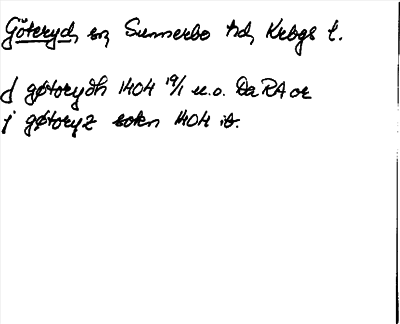 Göteryd, sn, Sunnerbo hd, Krbgs l.
j gøtorydh 1404 19/1 u.o. Da RA or
j gøtoryz sokn 1404 ib.